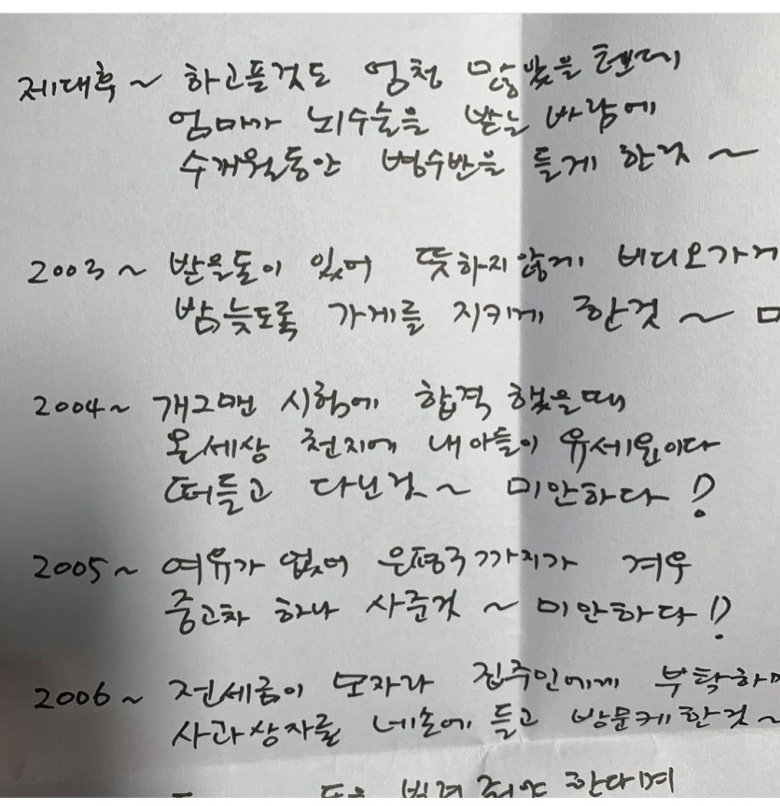 제대후~ 하고픈것도 엄청 많았을 텐데
엄마가 뇌수술을 받는 바람에
수개월동안 병수발을 들게 한것~
2003~ 받을돈이 있어 뜻하지않게 비디오가게
밤늦도록 가게를 지키게 한것~
2004~ 개그맨 시험에 합격 했을때
온세상 천지에 내아들이 유세윤이다
떠들고 다닌것~ 미안하다!?
2005~ 여유가 없어 은평구까지가 겨우
중고차 하나 사준것~ 미안하다!?
2006~ 전세금이 모자라 집주인에게 부탁하며
사과상자를 네손에 들고 방문케한것~
돈을 빌려 줘야 한다며